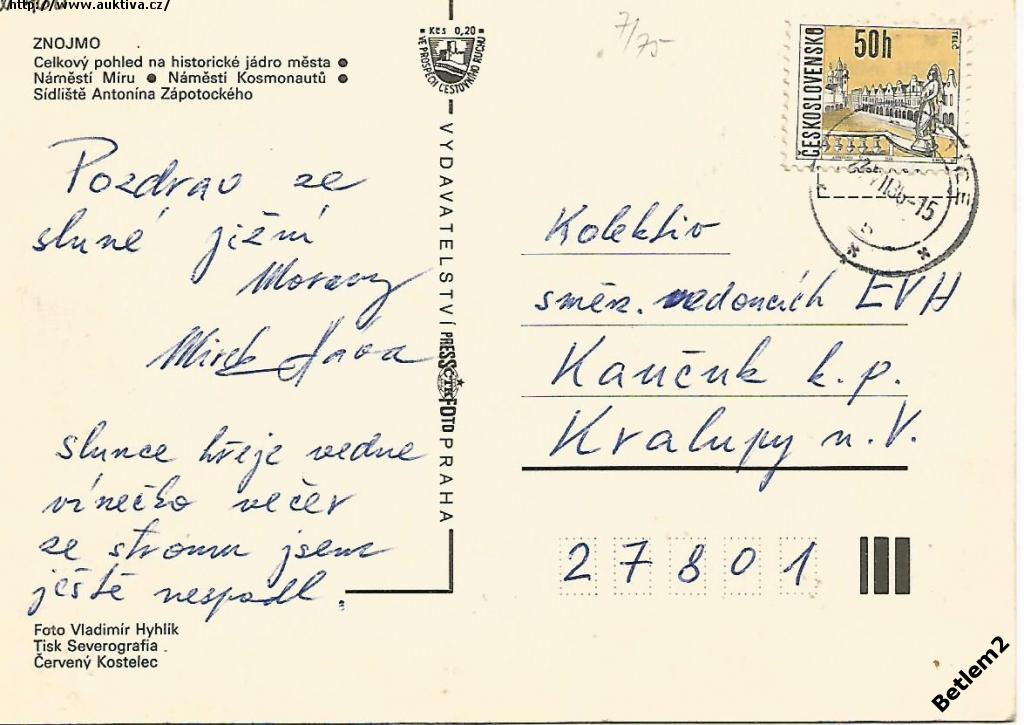 http://www.auktiva.cz/
ZNOJMO
Celkový pohled na historické jádro města ●
Náměstí Míru ● Náměstí Kosmonautů ●
Sídliště Antonína Zápotockého
Pozdrav ze
sluné jižní
Moravy
Mirek
slunce hřeje vedne
vínečko večer
ze stromu jsem
ještě nespadl.
Foto Vladimír Hyhlík
Tisk Severografia
Červený Kostelec
Kčs 0,20
VE PROSPĚCH CESTOVNÍHO RUCHU
VYDAVATELSTVÍ PRESSFOTO PRAHA
ČTK
7/75
ČESKOSLOVENSKO
50h
TELČ
Kolektiv
směn. vedoucích EVH
Kaučuk k.p.
Kralupy n. V.
27801
Betlem2